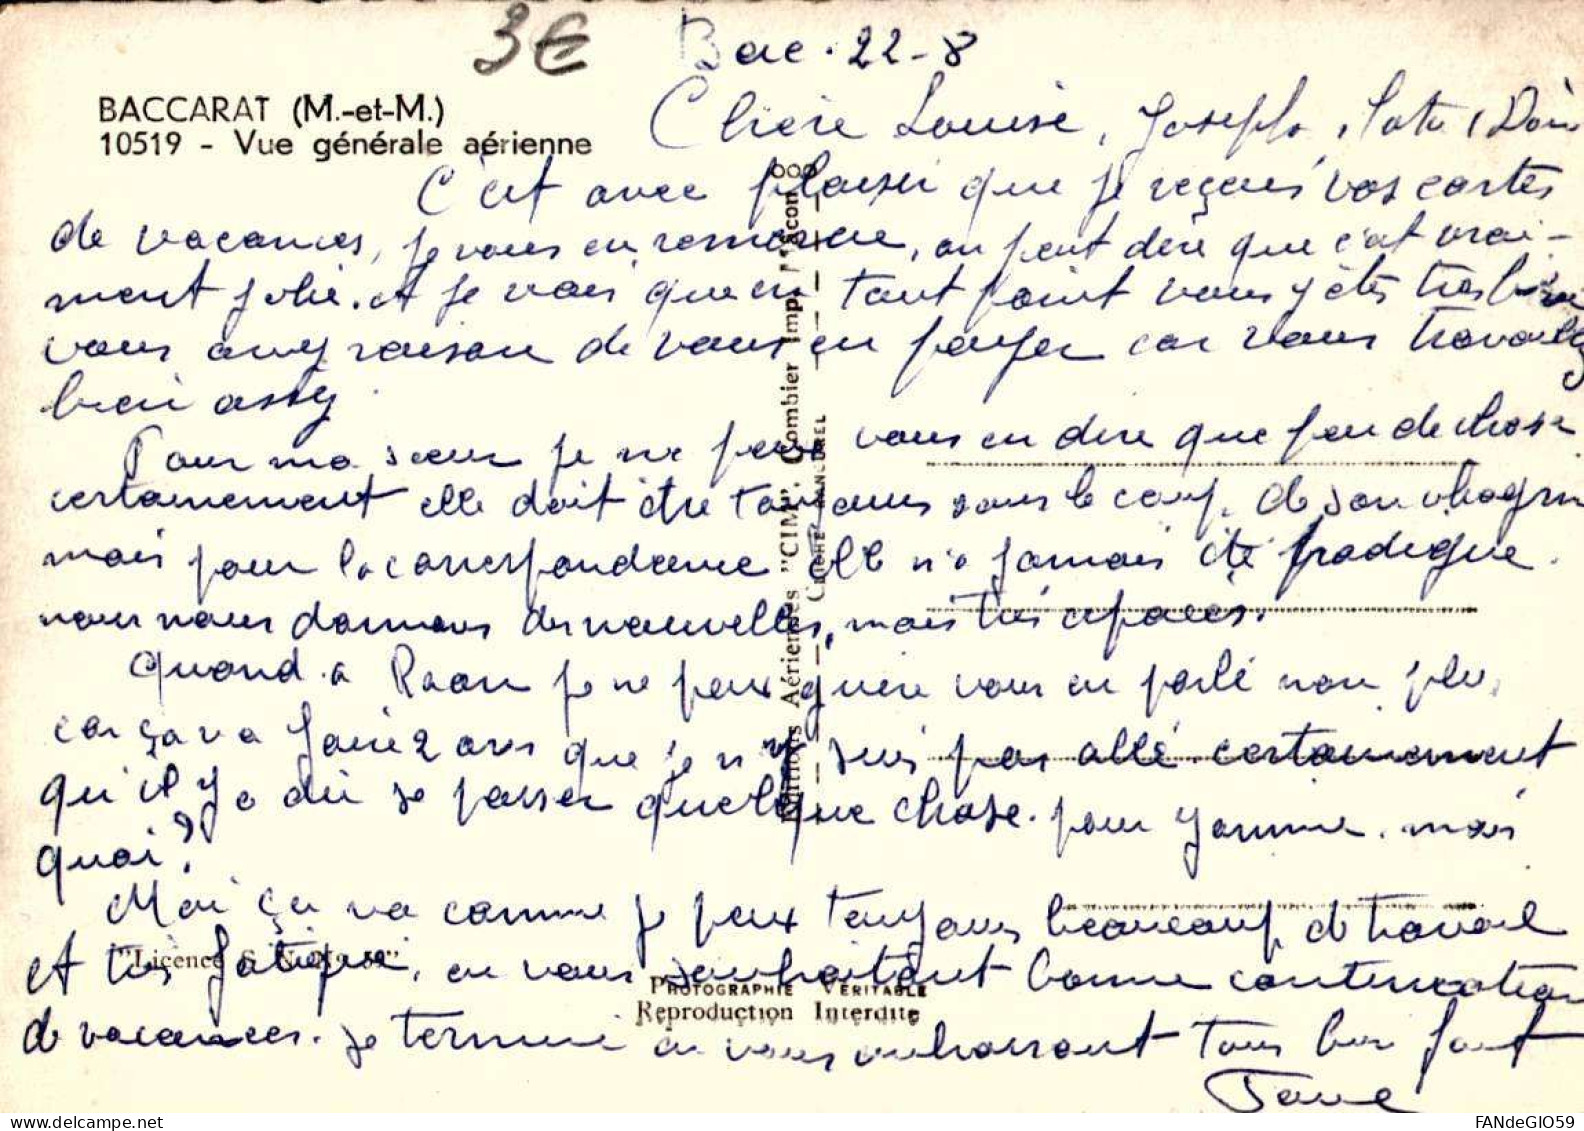 3€
Bac. 22-8
BACCARAT (M.-et-M.)
10519 - Vue générale aérienne
Chère Louise, Joseph,
C'est avec plaisir que je reçus vos cartes
de vacances, je vous en remercie, on peut dire que c'est vrai-
ment jolie. et je vois que en tout point vous y êtes très bien
vous avez raison de vous en payer car vous travaillez
bien assez.
Pour ma sœur je ne peux vous en dire que peu de chose
certainement elle doit être toujours sous le coup de son chagrin
mais pour la correspondance elle n'a jamais été prodigue.
nous nous donnons des nouvelles, mais très espacés.
Quand à Raon je ne peux guère vous en parlé non plus,
car ça va faire 2 ans que je n'y suis pas allé. certainement
qu'il y a dû se passer quelque chose. pour Yonnne. mais
quoi?
Moi ça va comme je peux toujours beaucoup de travail
et très fatigué, en vous souhaitant bonne continuation
de vacances. je termine en vous embrassant tous bien fort
Editions Aériennes "CIM", Combier Imp. Mâcon
"Licence
Photographie Véritable
Reproduction Interdite
FANdeGIO59